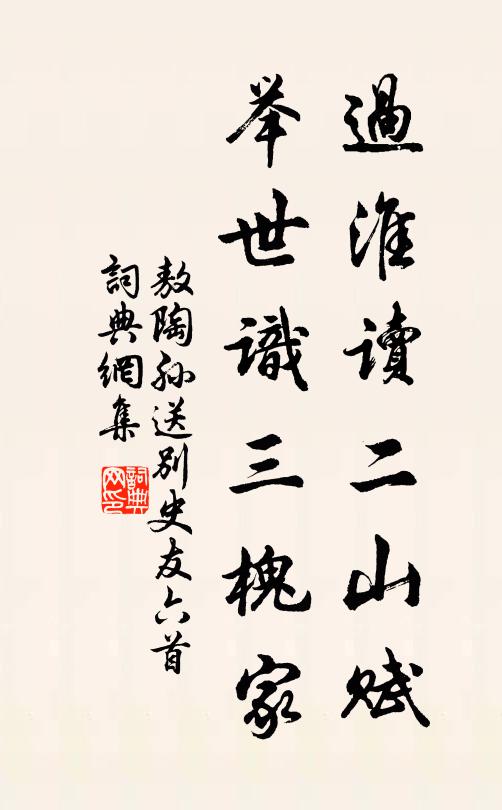 過淮讀二山賦
举世識三槐家
敖陶孙送别史友六首
詞典網集
詞典网印